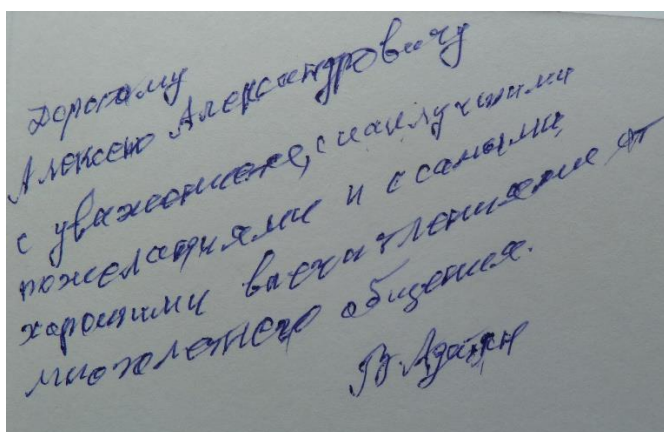 Дорогому
Алексею Александровичу
с уважением, с наилучшими
пожеланиями и с самыми
хорошими впечатлениями от
многолетнего общения.
В.